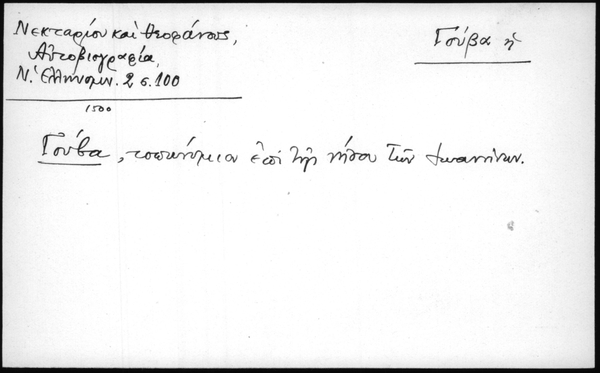 Νεκταρίου καὶ Θεοφάνους,
Αὐτοβιογραφία,
Ν. Ἑλληνομν. 2 σ. 100
1500
Γούβα ἡ
Γούβα, τοπωνύμιον ἐπὶ τῆς νήσου τῶν Ἰωαννίνων.